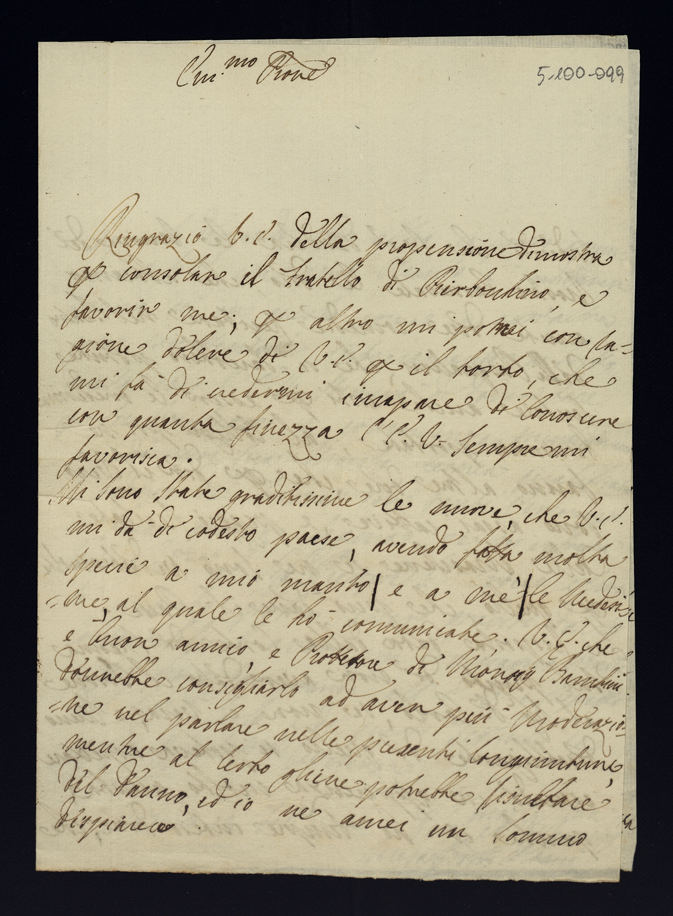 Em.mo Prone
5-100-099
Ringrazio V.E. della propensione dimostra
p consolar il fratello di Pierbonhino, e
favorir me; p altro mi potrei con ra=
gione dolere di V.E. p il torto, che
mi fà di credermi incapace di conoscere
con quanta finezza l'E.V. sempre mi
favorisca.
Mi sono state graditissime le nuove, che V.E.
mi dà di codesto paese, avendo fatta molta
specie a mio marito e a me le medesi=
=me, al quale le hò comunicate. V.E. che
è buon amico, e Protettore di Monsig Bambini
dovrebbe consigliarlo ad aver più moderazio=
=ne nel parlare nelle presenti congiunture,
mentre al certo gliene potrebbe risultare
del danno, ed io ne avrei un sommo
dispiacere